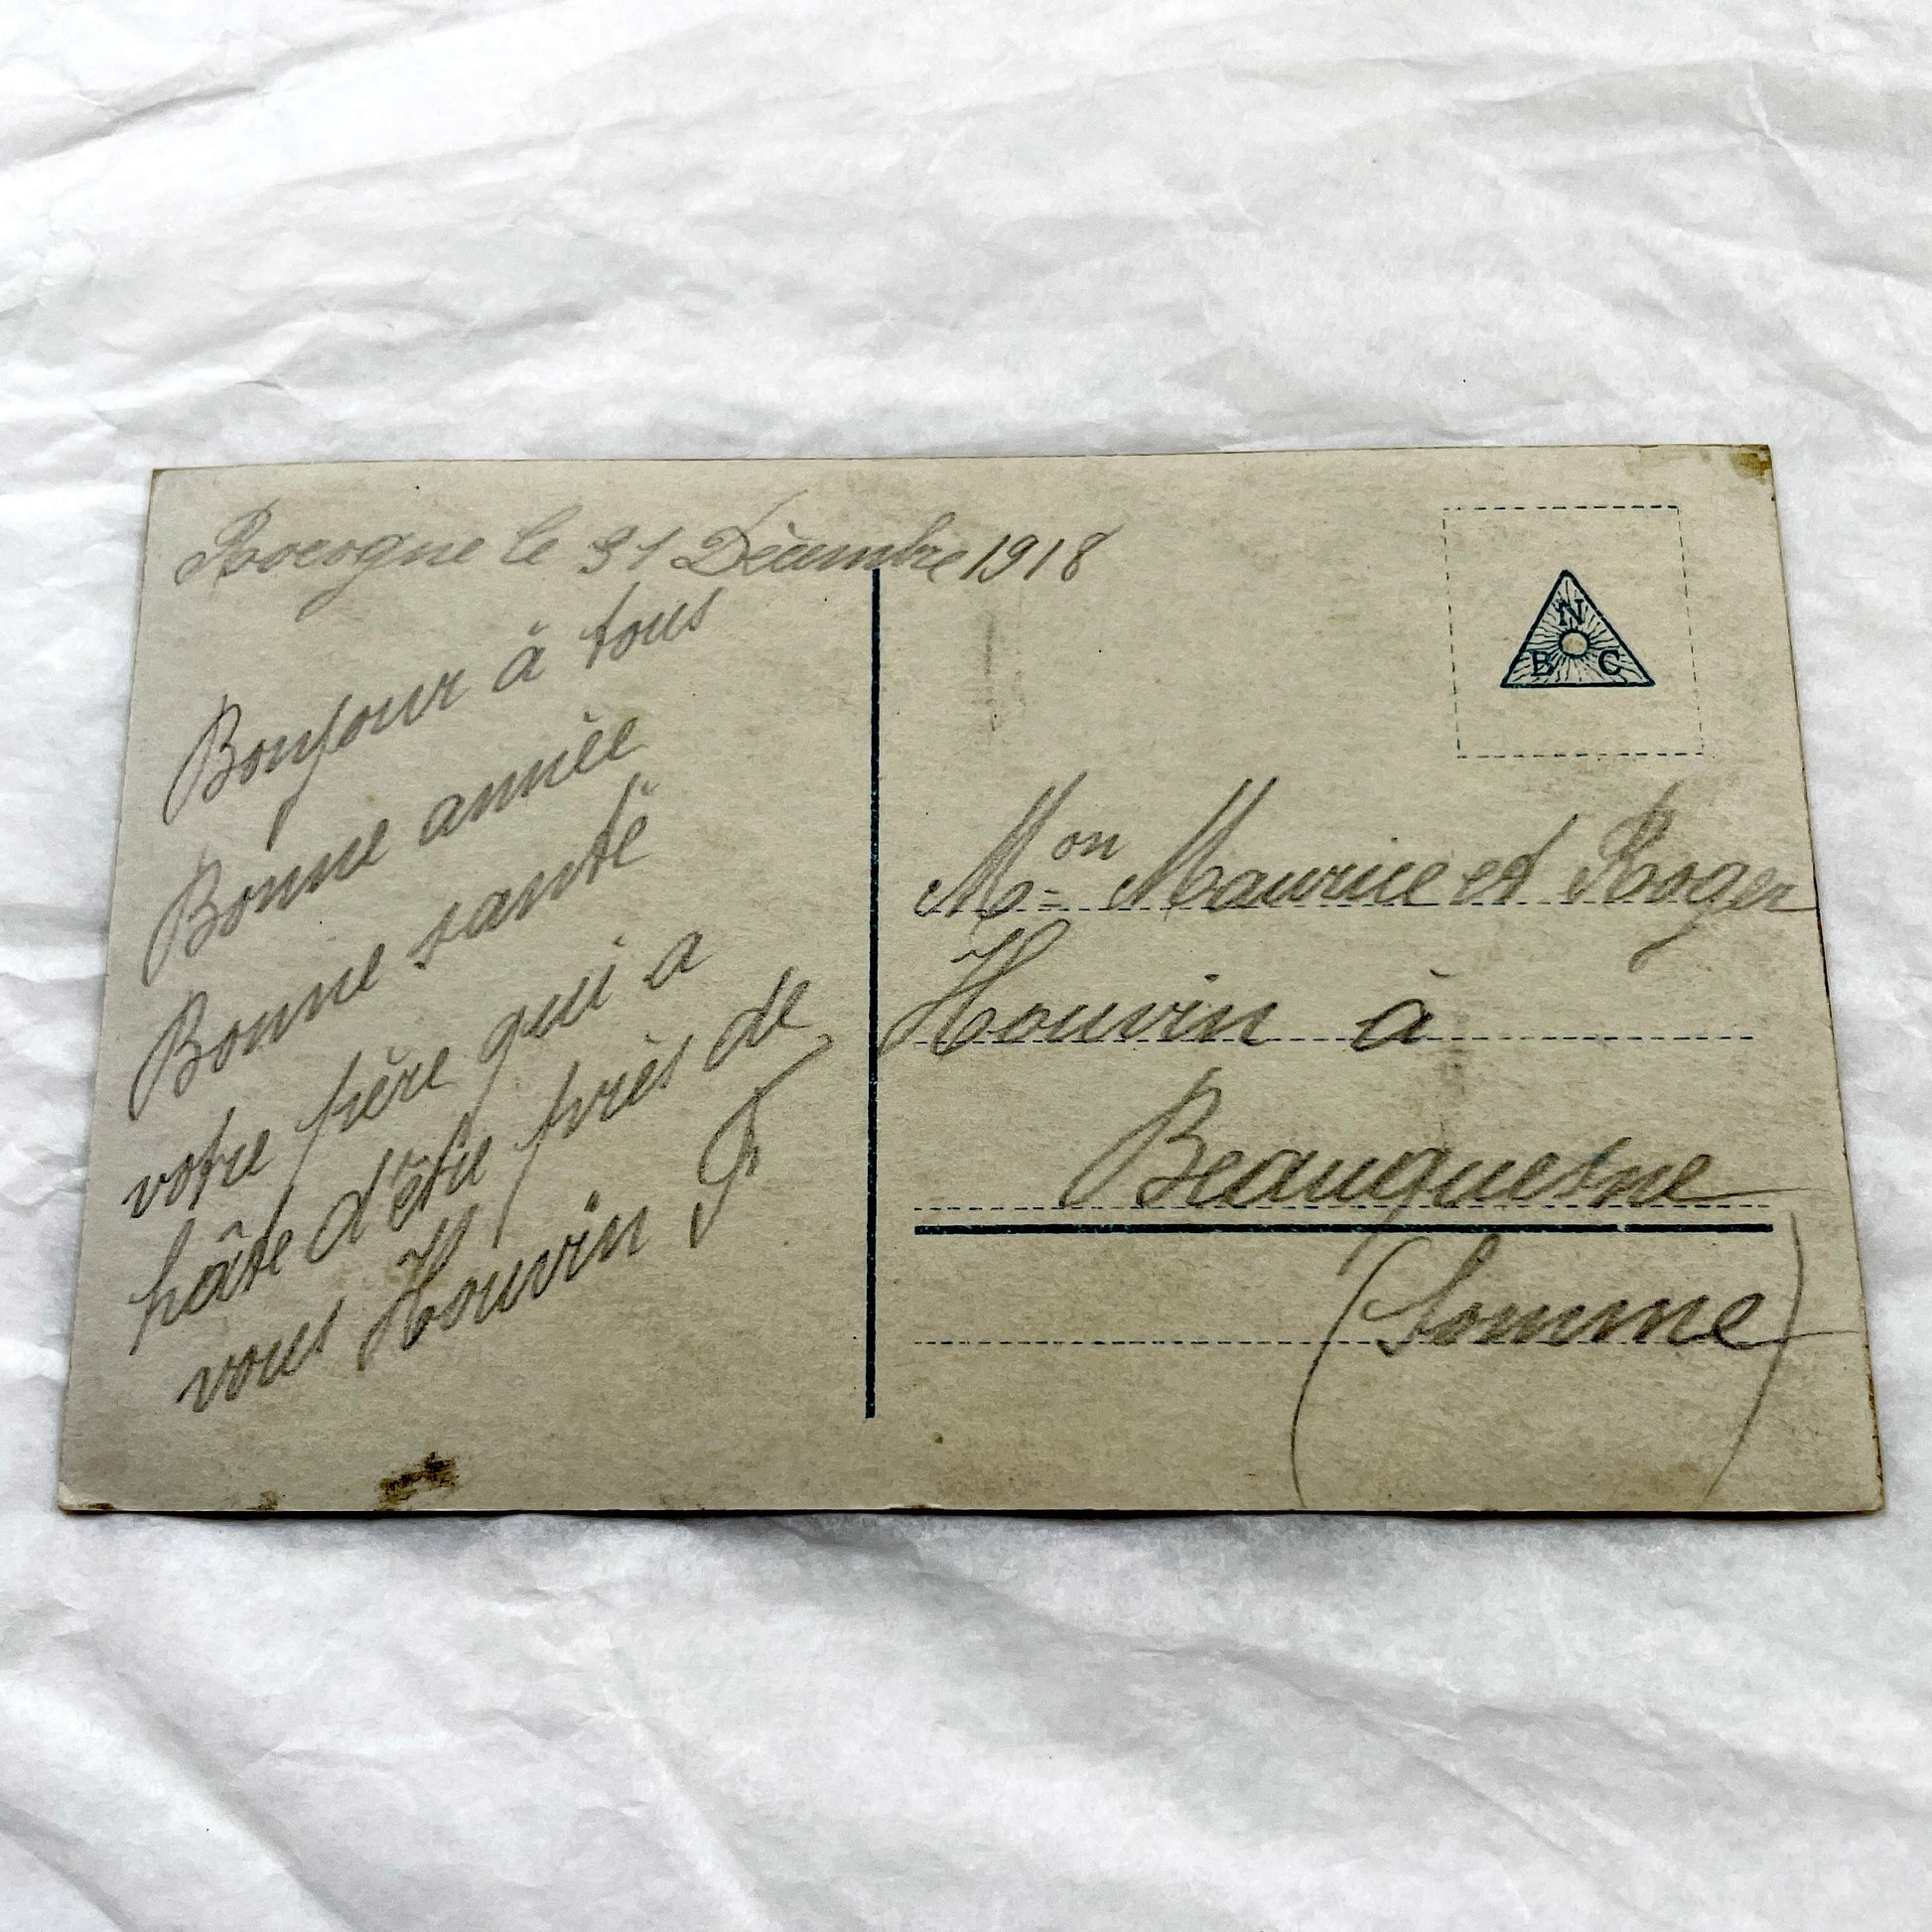 Rocogne le 31 Décembre 1918
Bonjour à tous
Bonne année
Bonne santé
votre père qui a
hâte d'être près de
vous Houvin F
N
B C
Mon Maurice et Roger
Houvin à
Beauquesne
(Somme)